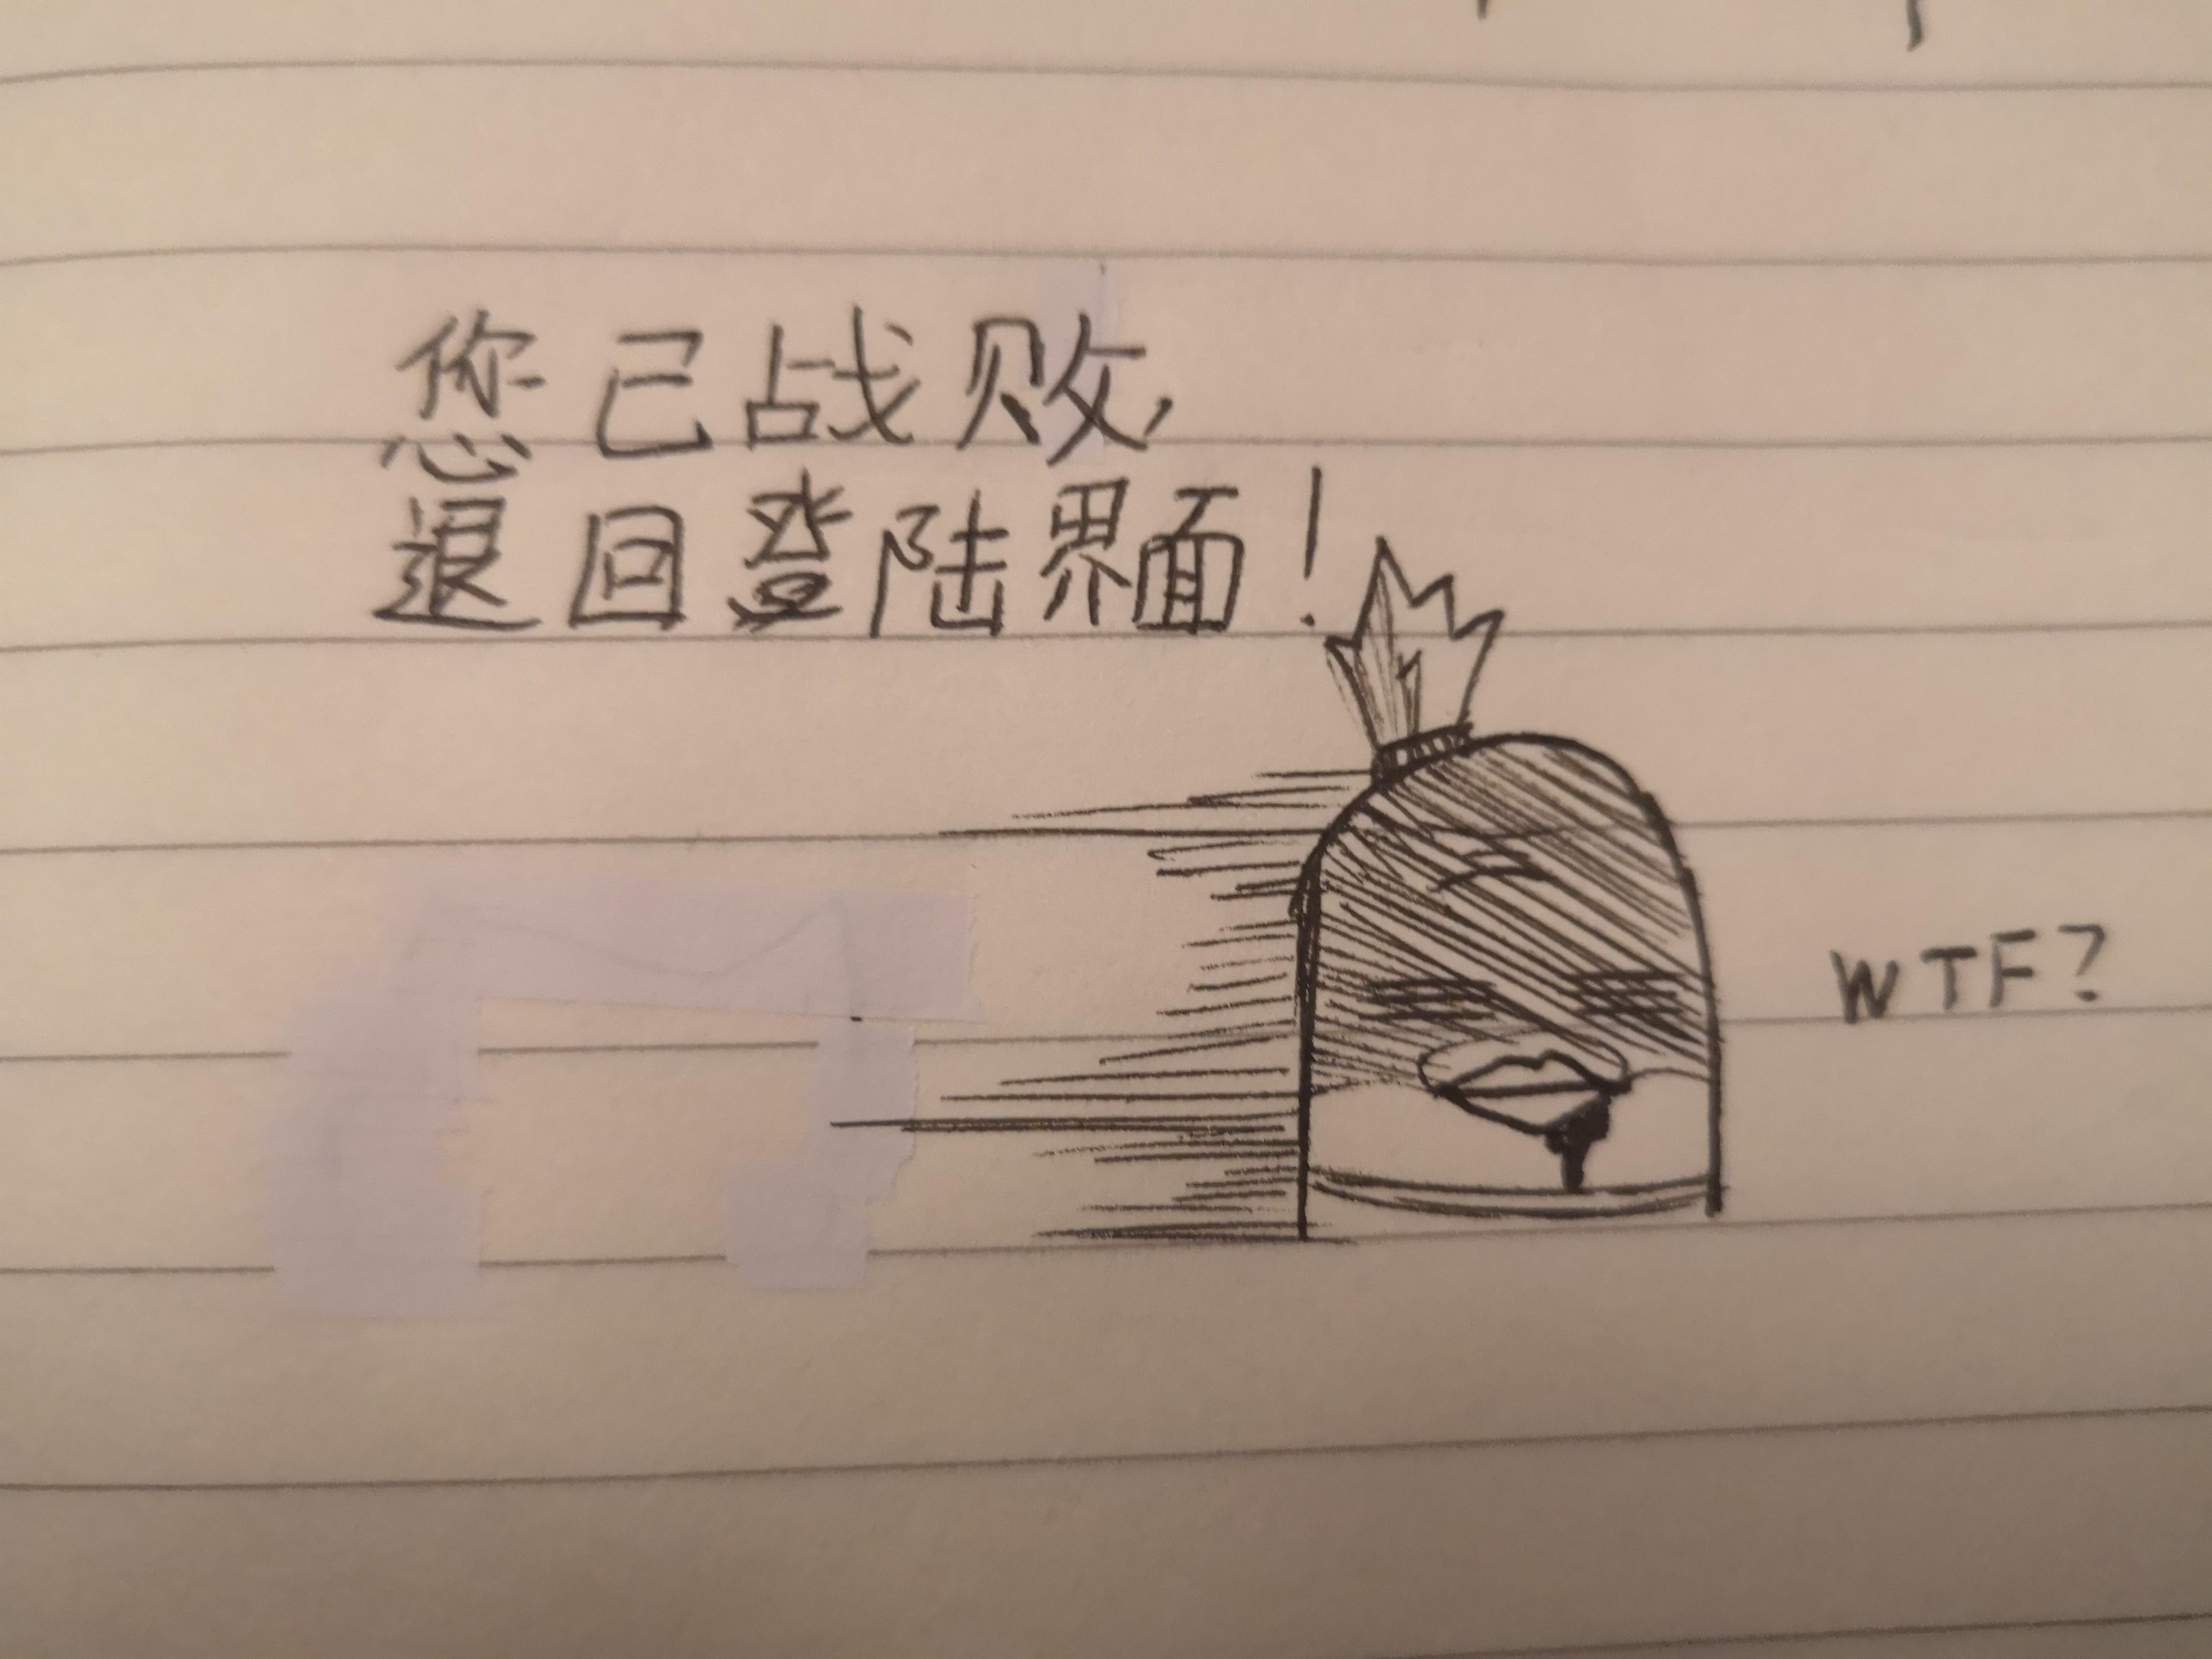 您已战败,
退回登陆界面!
WTF?